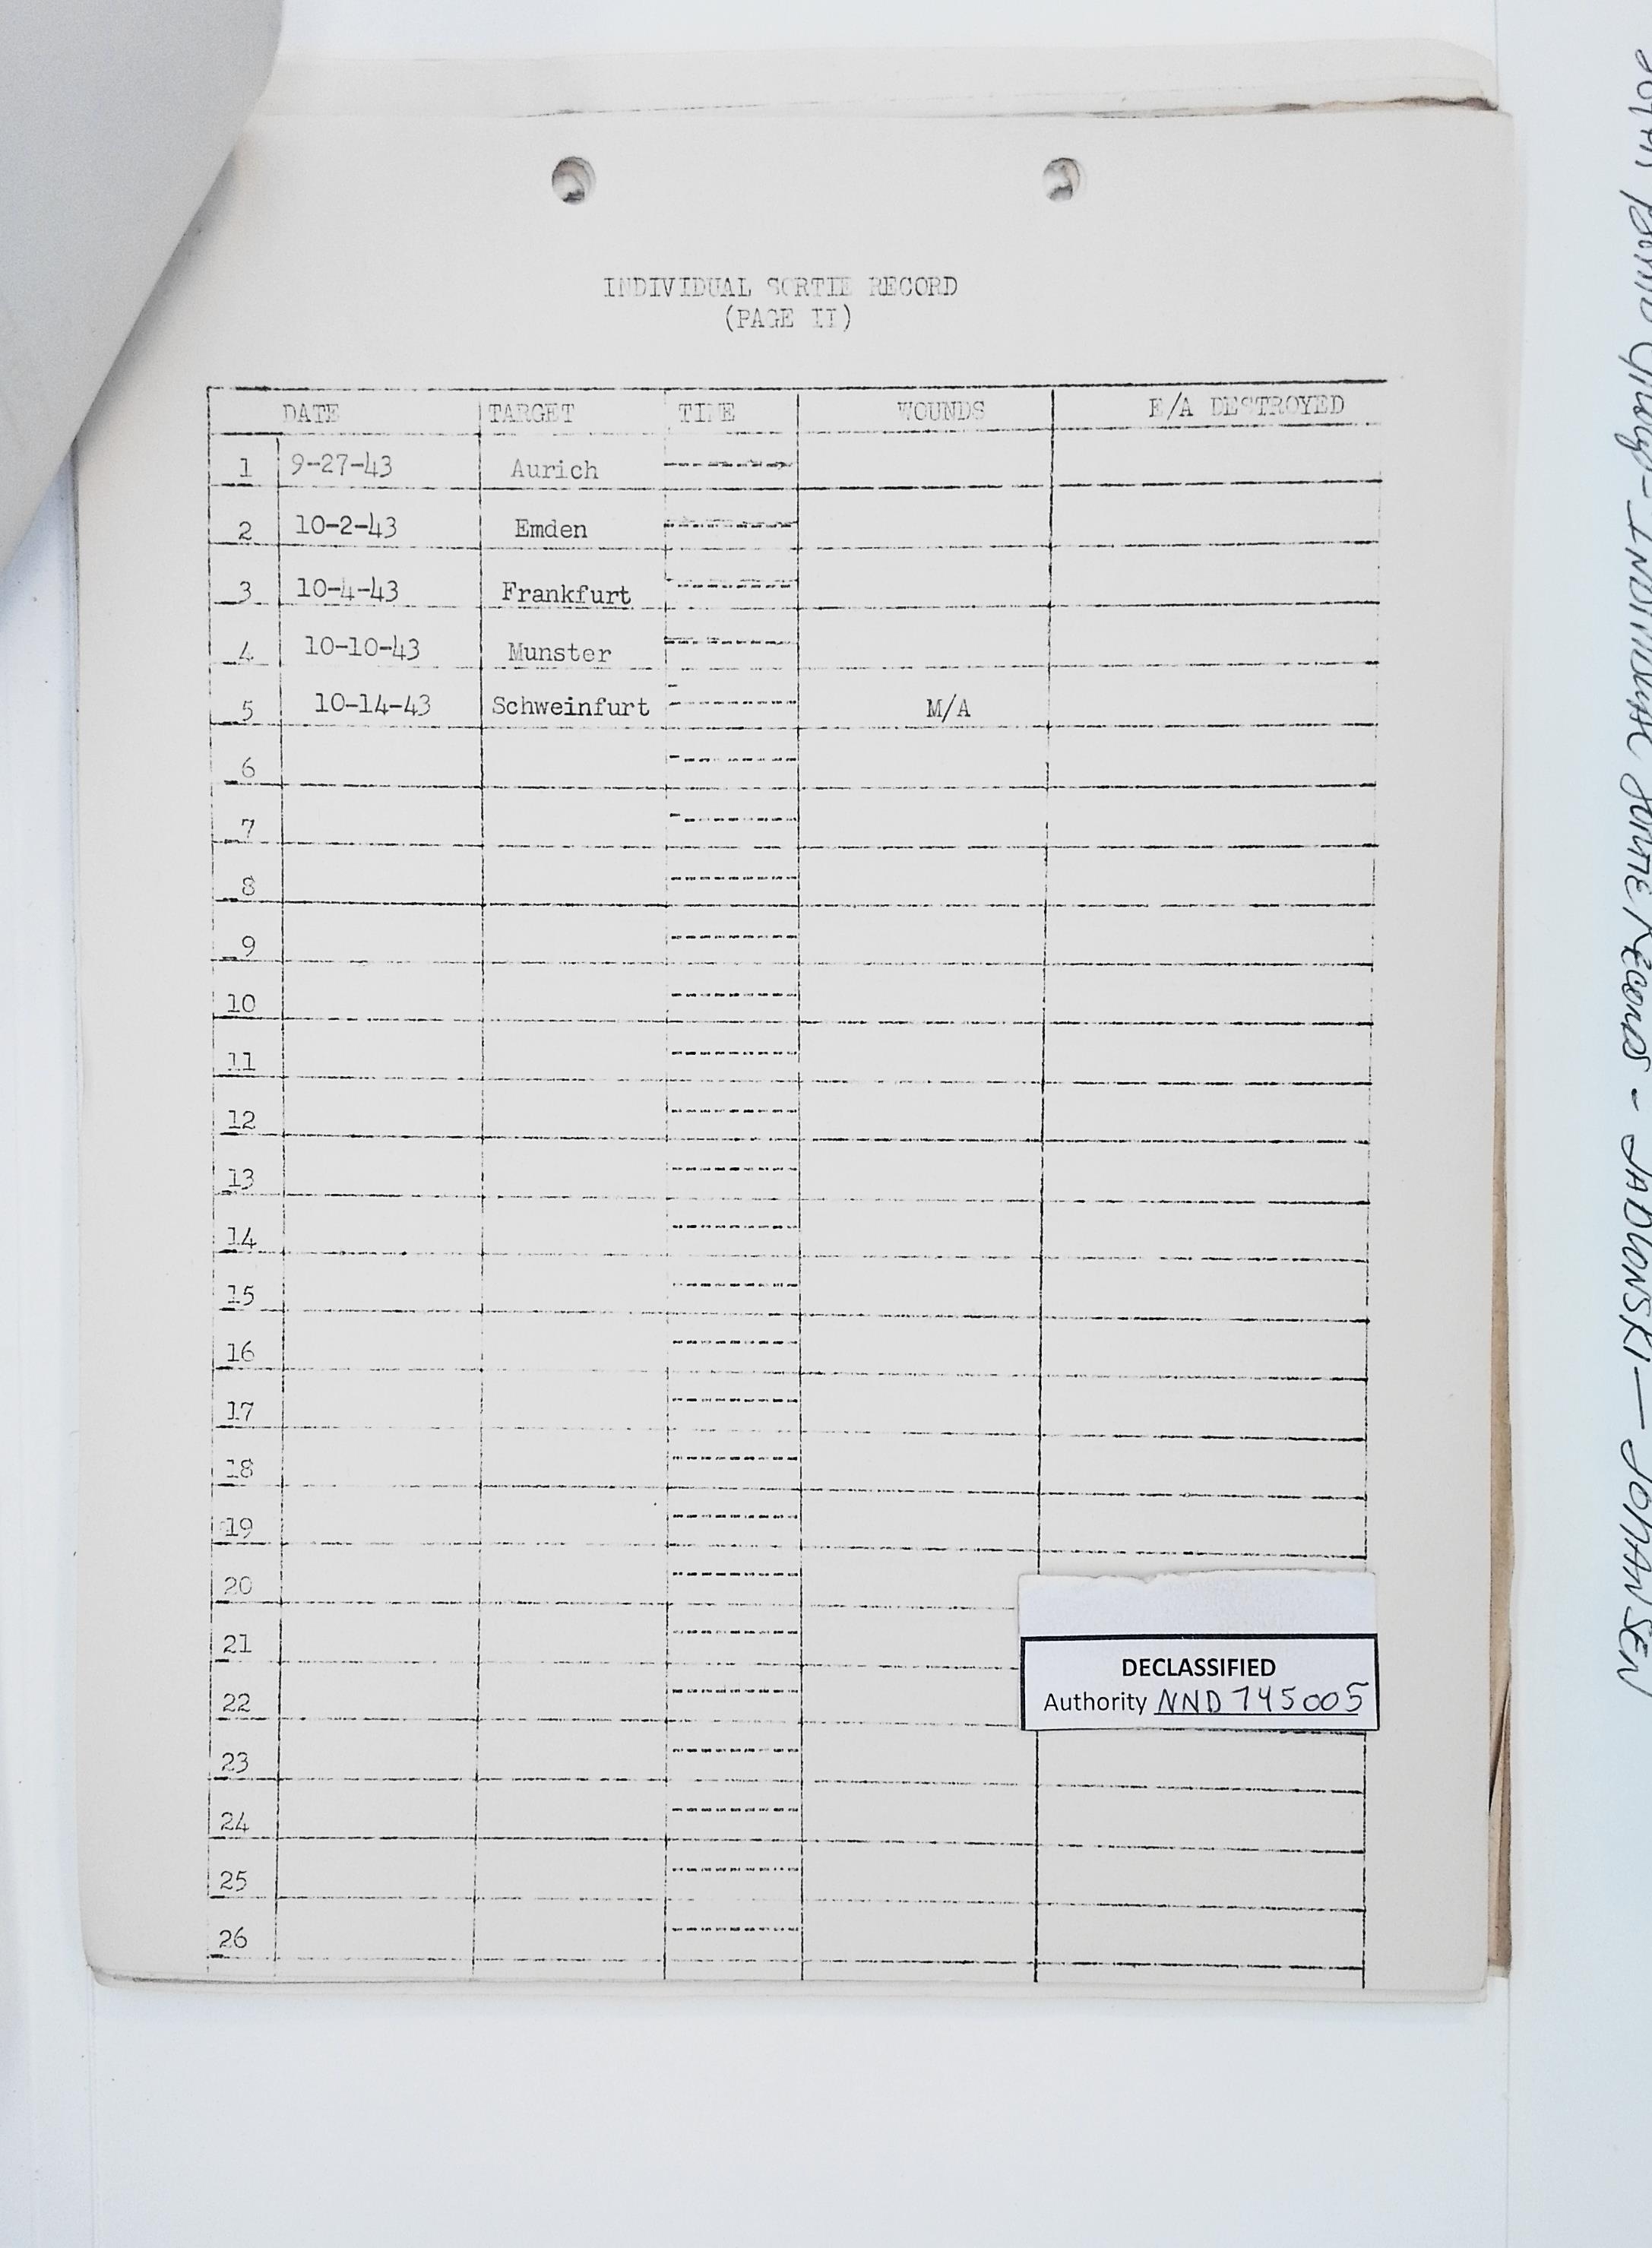 INDIVIDUAL SORTIE RECORD
(PAGE II)
DATE TARGET TIME WOUNDS E/A DESTROYED
1 9-27-43 Aurich
2 10-2-43 Emden
3 10-4-43 Frankfurt
4 10-10-43 Munster
5 10-14-43 Schweinfurt M/A
6
7
8
9
10
11
12
13
14
15
16
17
18
19
20
21
22
23
24
25
26
DECLASSIFIED
Authority NND 745005
BOMB GROUP - INDIVIDUAL SORTIE RECORDS - JADLONSKI — JOHANSEN